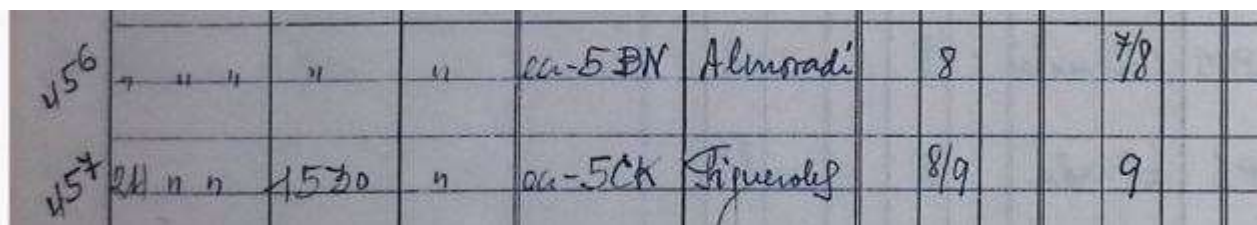 456 " " " " " ea-5BN Almoradí 8 7/8
457 24 " " 1530 " ea-5CK Figueroles 8/9 9